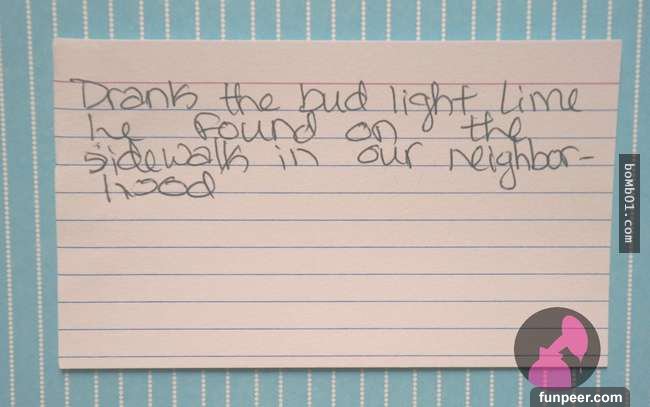 Drank the bud light Lime
he found on the
sidewalk in our neighbor-
hood
boMb01.com
funpeer.com